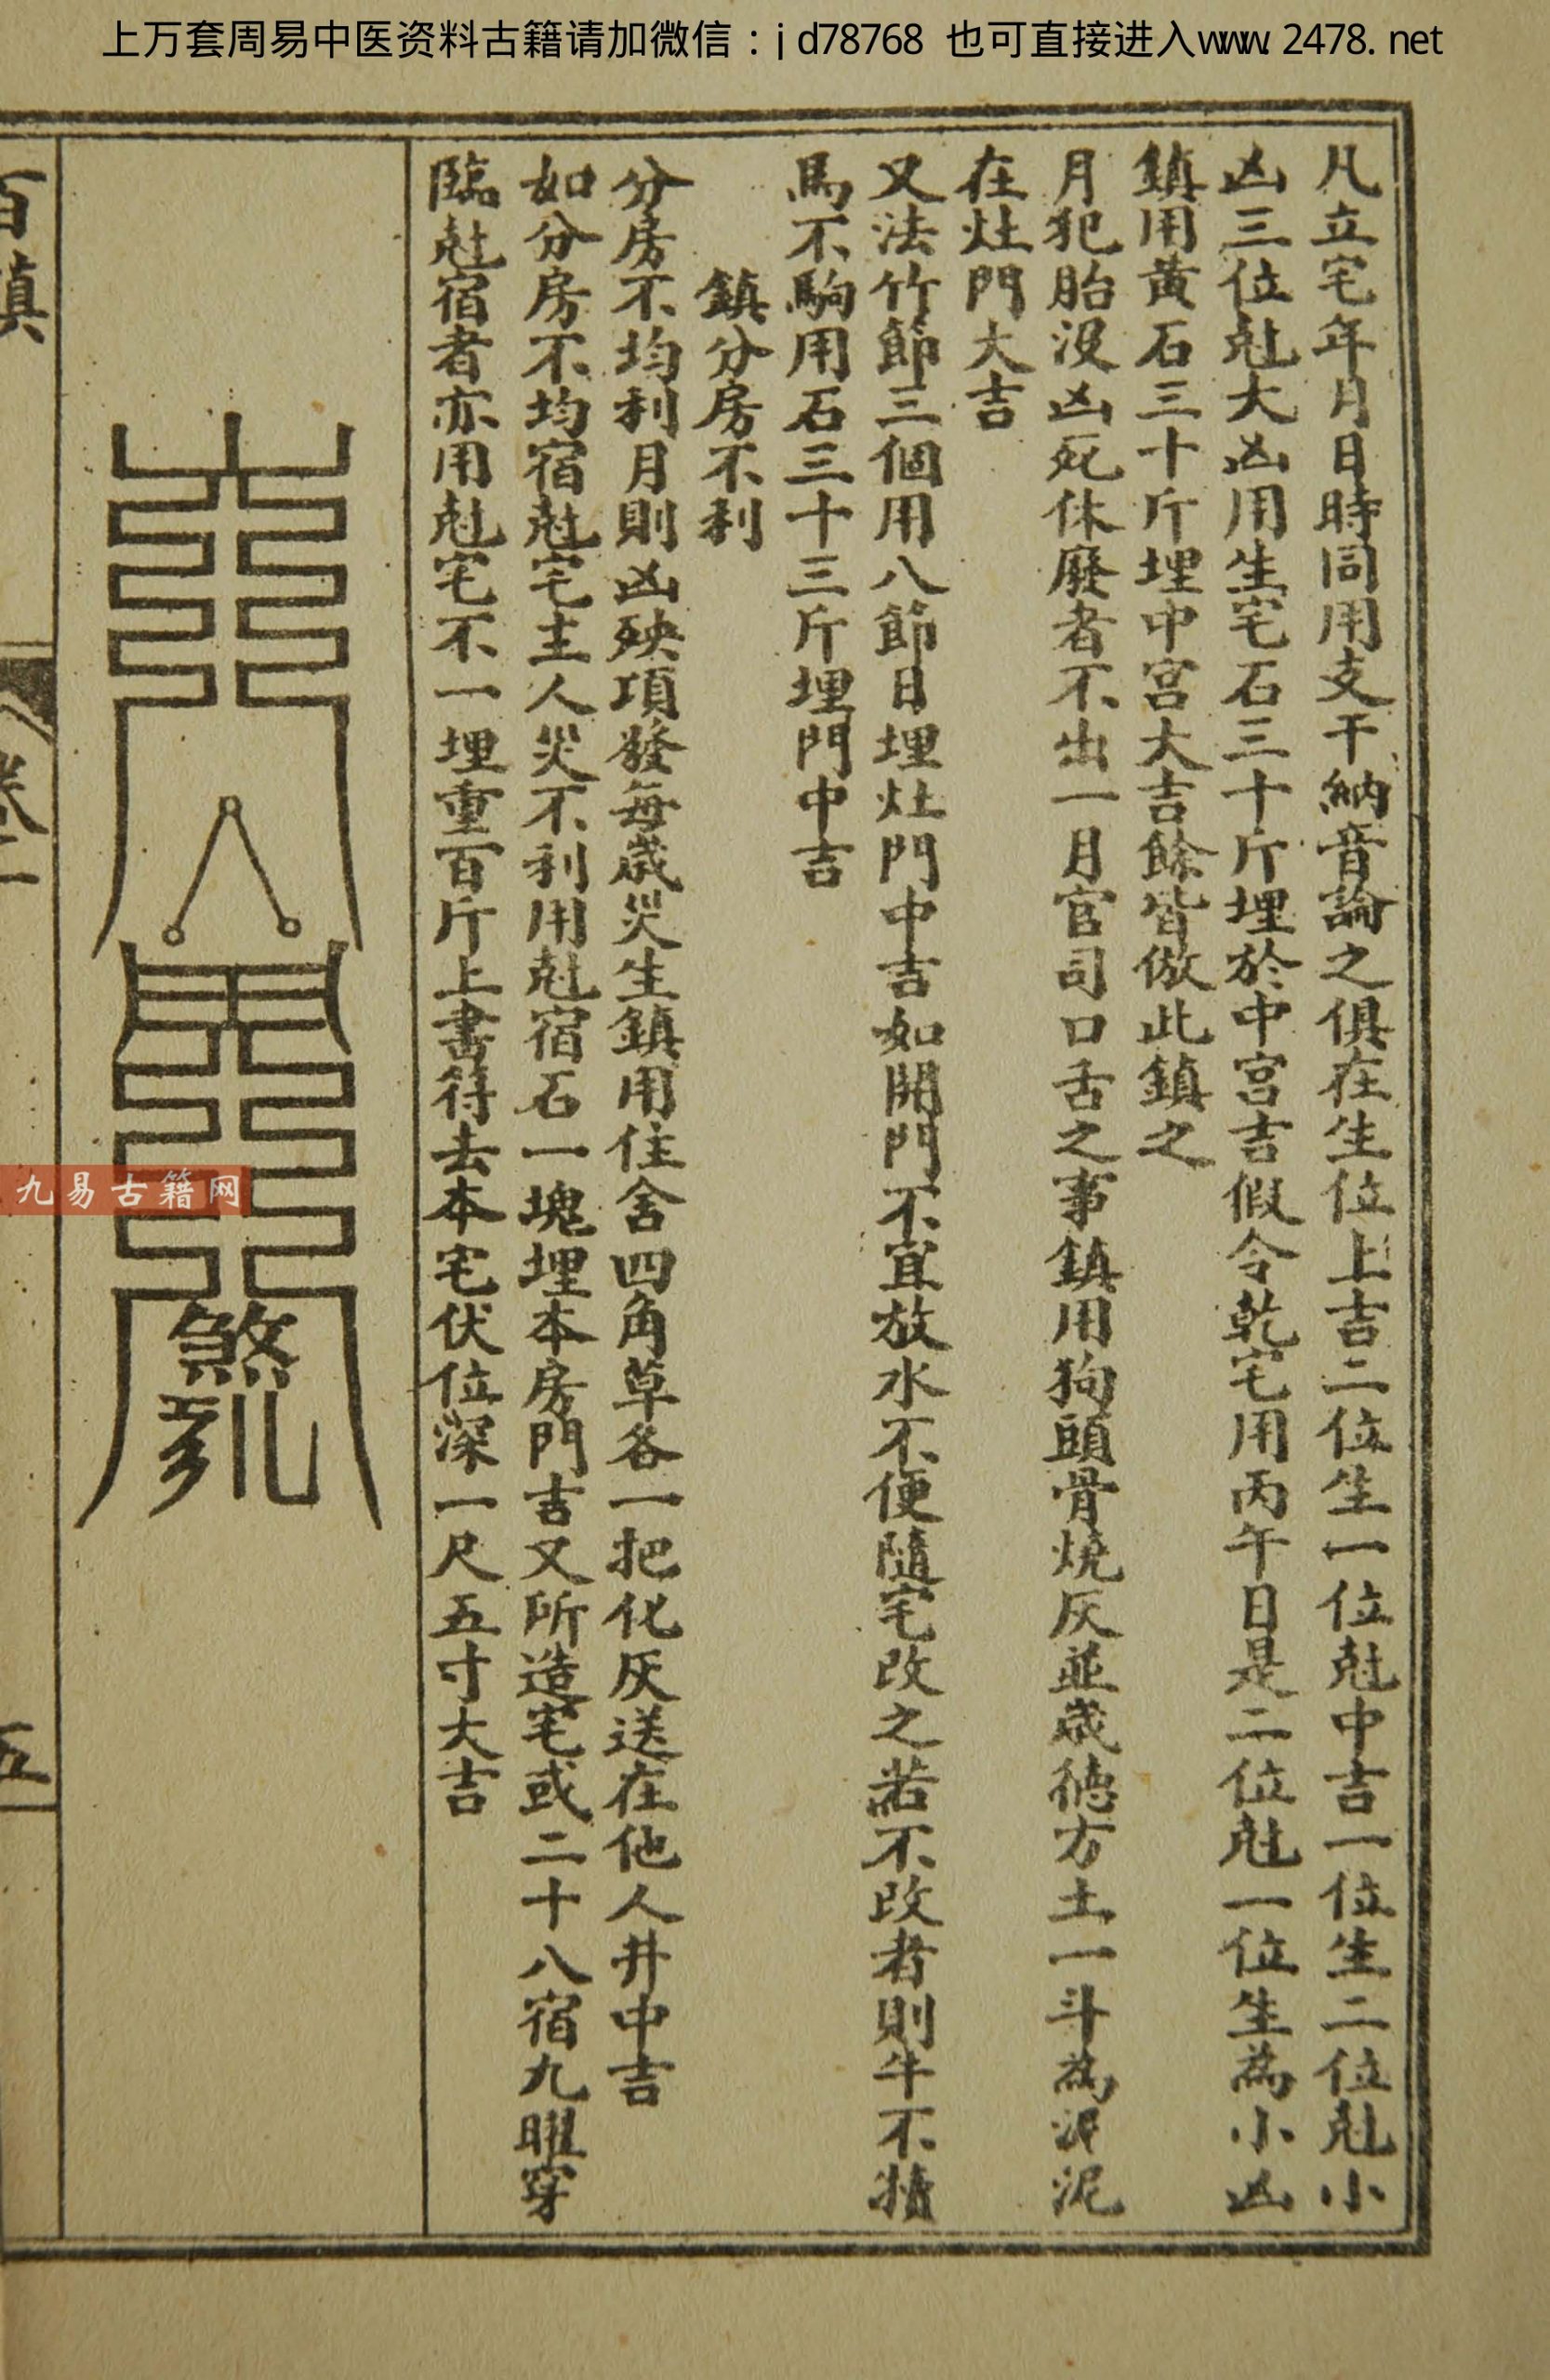 上万套周易中医资料古籍请加微信：jd78768 也可直接进入www.2478.net
凡立宅年月日時同用支干納音論之俱在生位上吉二位生一位尅中吉一位生二位尅小
凶三位尅大凶用生宅石三十斤埋於中宮吉假令乾宅用丙午日是二位尅一位生為小凶
鎮用黃石三十斤埋中宮大吉餘皆倣此鎮之
月犯胎沒凶死休廢者不出一月官司口舌之事鎮用狗頭骨燒灰並歲德方土一斗為泥泥
在灶門大吉
又法竹節三個用八節日埋灶門中吉如開門不宜放水不便隨宅改之若不改者則牛不犢
馬不駒用石三十三斤埋門中吉
鎮分房不利
分房不均利月則凶殃項發每歲災生鎮用住舍四角草各一把化灰送在他人井中吉
如分房不均宿尅宅主人災不利用尅宿石一塊埋本房門吉又所造宅或二十八宿九曜穿
臨尅宿者亦用尅宅不一埋重百斤上書符去本宅伏位深一尺五寸大吉
百鎮
卷二
五
九易古籍网